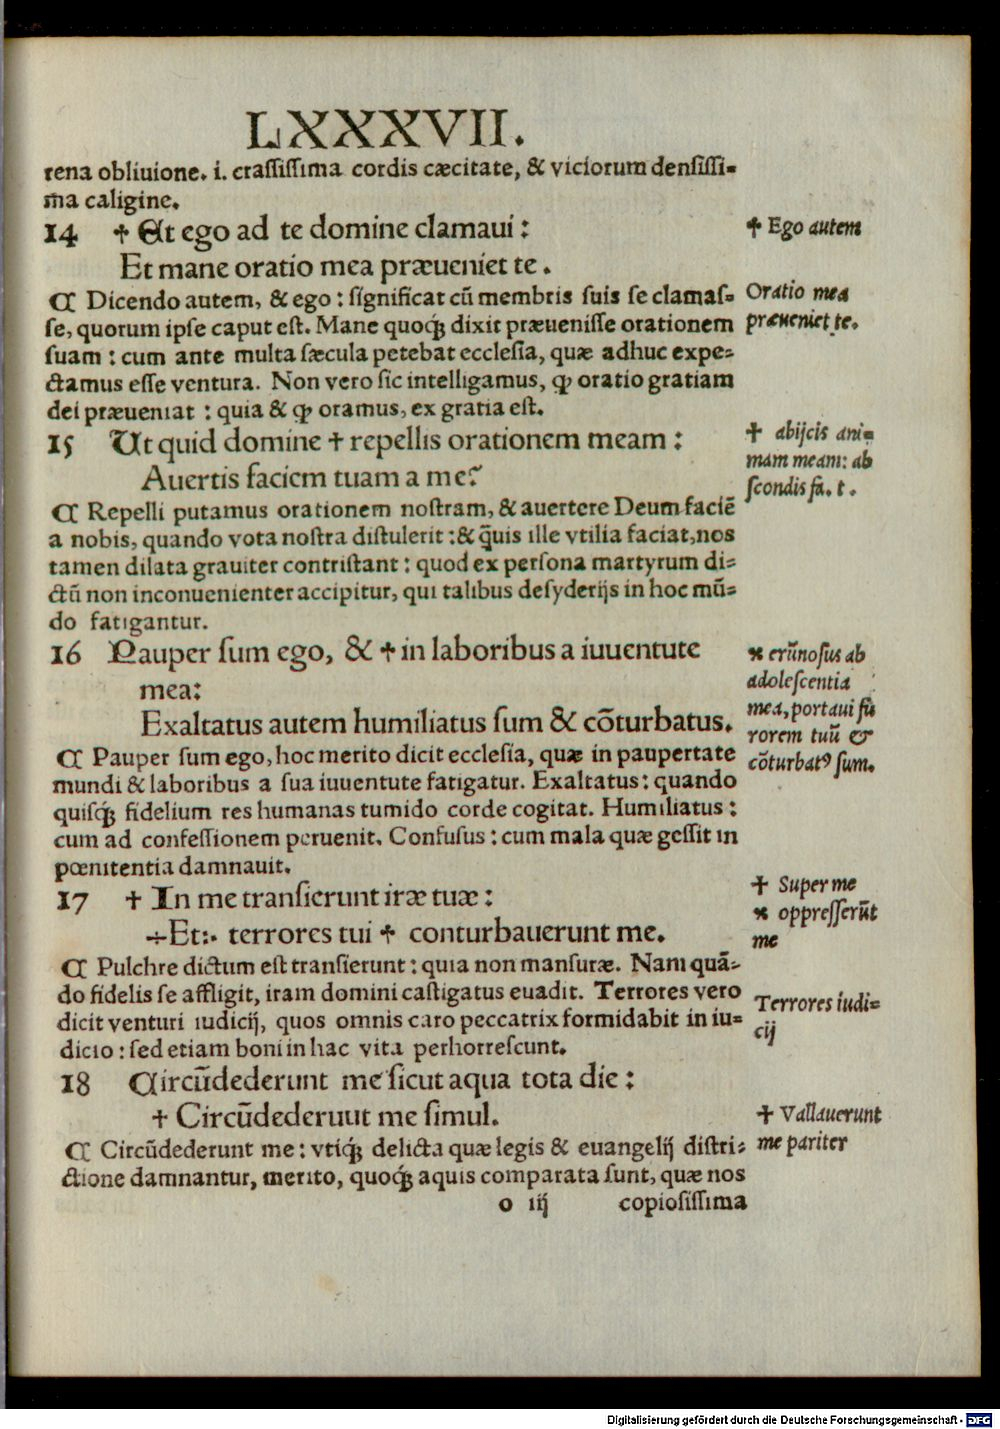 LXXXVII.
rena obliuione. i. crassissima cordis cæcitate, & viciorum densissi-
m̃a caligine.
14 ✝ Et ego ad te domine clamaui :
Et mane oratio mea præueniet te.
✝ Ego autem
¶ Dicendo autem, & ego : significat cũ membris suis se clamas-
se, quorum ipse caput est. Mane quoq̃ dixit præuenisse orationem
suam : cum ante multa sæcula petebat ecclesia, quæ adhuc expe-
ctamus esse ventura. Non vero sic intelligamus, ꝙ oratio gratiam
dei præueniat : quia & ꝙ oramus, ex gratia est.
Oratio mea
præueniet te.
15 Ut quid domine ✝ repellis orationem meam :
Auertis faciem tuam a me?
✝ abijcis ani-
mam meam: ab
scondis fa. t.
¶ Repelli putamus orationem nostram, & auertere Deum faciẽ
a nobis, quando vota nostra distulerit : & q̃uis ille vtilia faciat, nos
tamen dilata grauiter contristant : quod ex persona martyrum di-
ctũ non inconuenienter accipitur, qui talibus desyderijs in hoc mũ-
do fatigantur.
16 Pauper sum ego, & ✝ in laboribus a iuuentute
mea:
Exaltatus autem humiliatus sum & cõturbatus.
⁌ erũnosus ab
adolescentia
mea, portaui fu
rorem tuũ &
cõturbatꝰ sum.
¶ Pauper sum ego, hoc merito dicit ecclesia, quæ in paupertate
mundi & laboribus a sua iuuentute fatigatur. Exaltatus : quando
quisq̃ fidelium res humanas tumido corde cogitat. Humiliatus :
cum ad confessionem peruenit. Confusus : cum mala quæ gessit in
pœnitentia damnauit.
17 ✝ In me transierunt iræ tuæ :
÷Et:· terrores tui ✝ conturbauerunt me.
✝ Super me
⁌ oppresserũt
me
¶ Pulchre dictum est transierunt : quia non mansuræ. Nam quã-
do fidelis se affligit, iram domini castigatus euadit. Terrores vero
dicit venturi iudicij, quos omnis caro peccatrix formidabit in iu-
dicio : sed etiam boni in hac vita perhorrescunt.
Terrores iudi-
cij
18 Circũdederunt me sicut aqua tota die :
✝ Circũdederuut me simul.
✝ Vallauerunt
me pariter
¶ Circũdederunt me : vtiq̃ delicta quæ legis & euangelij distri-
ctione damnantur, merito, quoq̃ aquis comparata sunt, quæ nos
o iij copiosissima
Digitalisierung gefördert durch die Deutsche Forschungsgemeinschaft - DFG